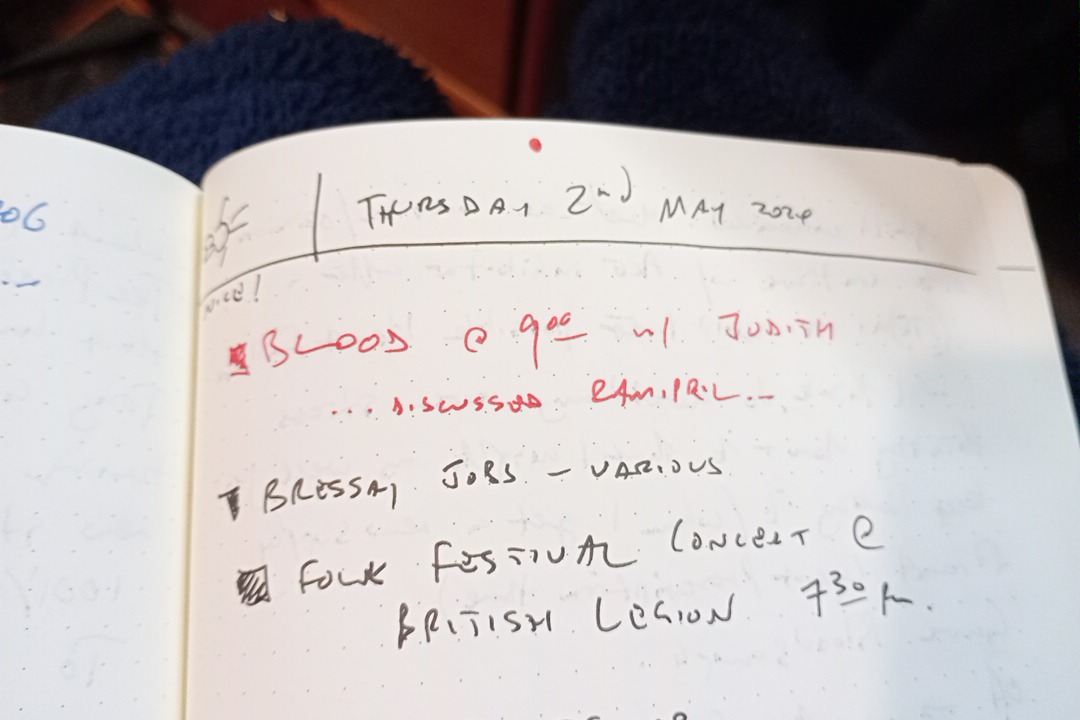 THURSDAY 2nd MAY 2024
NICE!
BLOOD @ 900 w/ JUDITH
... DISCUSSED RAMIPRIL...
BRESSAY JOBS - VARIOUS
FOLK FESTIVAL CONCERT @
BRITISH LEGION 730 pm.